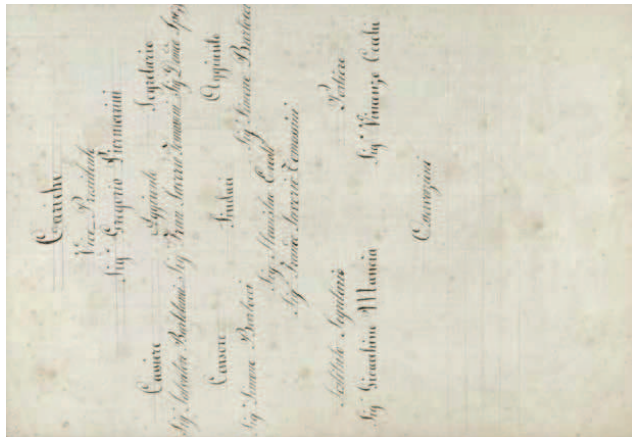 Cariche
Vice Presidente
Sig.r Gregorio Piermarini
Cassiere Aggiunto Segretario
Sig.r Salvatore Sig.r Fran. Saverio Tomassini Sig.r
Censore Sindaci Aggiunto
Sig.r Simone Barlocci Sig.r Stanislao Sig.r Simone Barlocci
Sig.r Franc. Saverio Tomassini
Sostituto Segretario Portiere
Sig.r Gioacchino Mancia Sig.r Vincenzo Cecchi